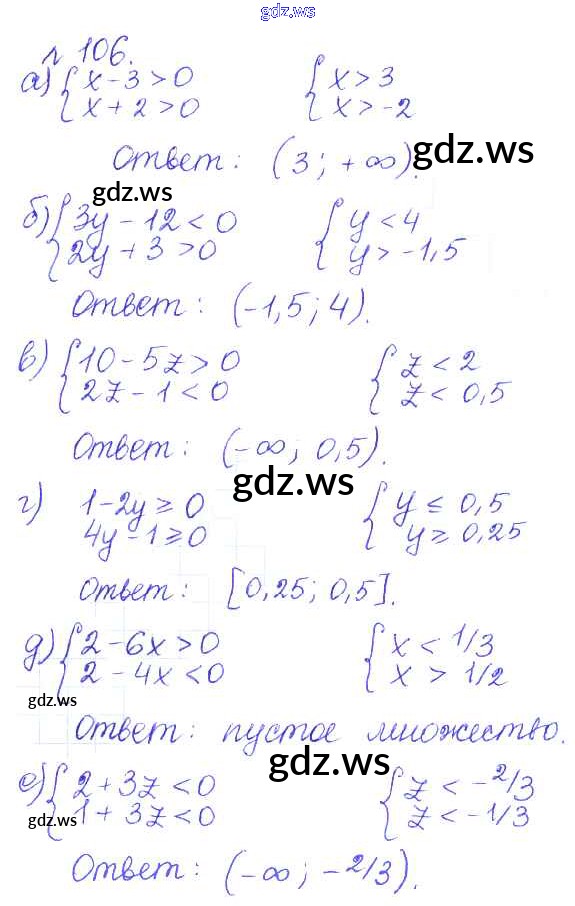 gdz.ws
г 106.
а) { x - 3 > 0 { x > 3
{ x + 2 > 0 { x > -2
Ответ: (3; +∞).
gdz.ws
gdz.ws
б) { 3y - 12 < 0 { y < 4
{ 2y + 3 > 0 { y > -1,5
Ответ: (-1,5; 4).
в) { 10 - 5z > 0 { z < 2
{ 2z - 1 < 0 { z < 0,5
Ответ: (-∞; 0,5).
gdz.ws
г) 1 - 2y ≥ 0 { y ≤ 0,5
4y - 1 ≥ 0 { y ≥ 0,25
Ответ: [0,25; 0,5].
д) { 2 - 6x > 0 { x < 1/3
{ 2 - 4x < 0 { x > 1/2
gdz.ws
Ответ: пустое множество.
gdz.ws
е) { 2 + 3z < 0 { z < -2/3
{ 1 + 3z < 0 { z < -1/3
gdz.ws
Ответ: (-∞; -2/3).